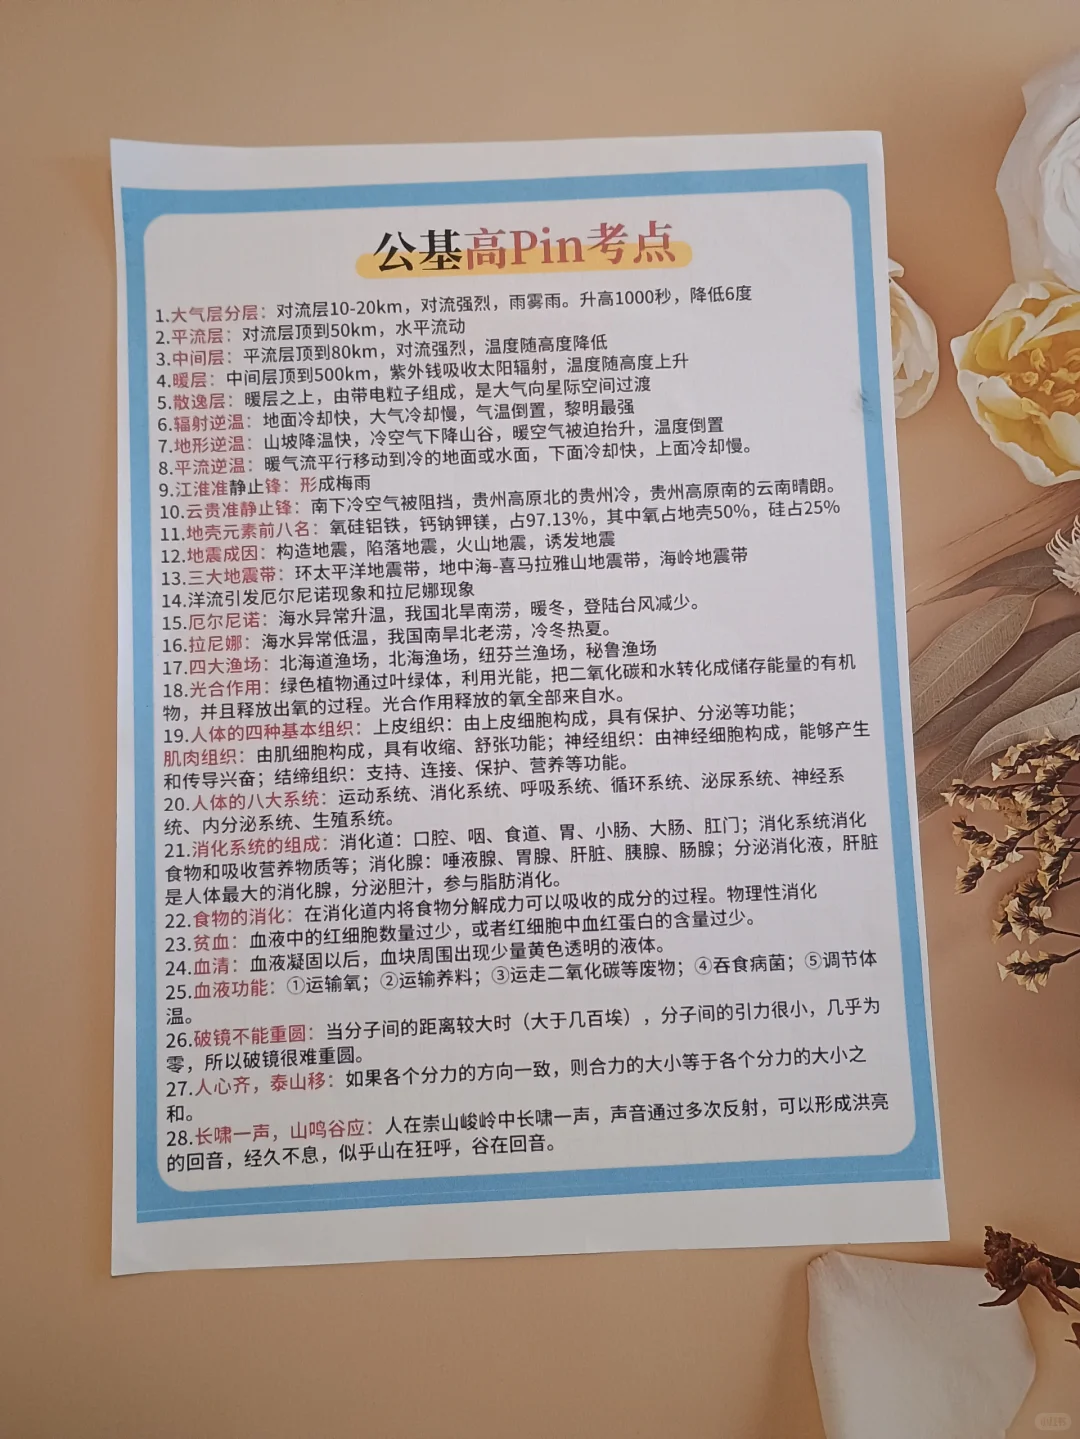 公基高Pin考点
1.大气层分层：对流层10-20km，对流强烈，雨雾雨。升高1000秒，降低6度
2.平流层：对流层顶到50km，水平流动
3.中间层：平流层顶到80km，对流强烈，温度随高度降低
4.暖层：中间层顶到500km，紫外钱吸收太阳辐射，温度随高度上升
5.散逸层：暖层之上，由带电粒子组成，是大气向星际空间过渡
6.辐射逆温：地面冷却快，大气冷却慢，气温倒置，黎明最强
7.地形逆温：山坡降温快，冷空气下降山谷，暖空气被迫抬升，温度倒置
8.平流逆温：暖气流平行移动到冷的地面或水面，下面冷却快，上面冷却慢。
9.江淮准静止锋：形成梅雨
10.云贵准静止锋：南下冷空气被阻挡，贵州高原北的贵州冷，贵州高原南的云南晴朗。
11.地壳元素前八名：氧硅铝铁，钙钠钾镁，占97.13%，其中氧占地壳50%，硅占25%
12.地震成因：构造地震，陷落地震，火山地震，诱发地震
13.三大地震带：环太平洋地震带，地中海-喜马拉雅山地震带，海岭地震带
14.洋流引发厄尔尼诺现象和拉尼娜现象
15.厄尔尼诺：海水异常升温，我国北旱南涝，暖冬，登陆台风减少。
16.拉尼娜：海水异常低温，我国南旱北老涝，冷冬热夏。
17.四大渔场：北海道渔场，北海渔场，纽芬兰渔场，秘鲁渔场
18.光合作用：绿色植物通过叶绿体，利用光能，把二氧化碳和水转化成储存能量的有机
物，并且释放出氧的过程。光合作用释放的氧全部来自水。
19.人体的四种基本组织：上皮组织：由上皮细胞构成，具有保护、分泌等功能；
肌肉组织：由肌细胞构成，具有收缩、舒张功能；神经组织：由神经细胞构成，能够产生
和传导兴奋；结缔组织：支持、连接、保护、营养等功能。
20.人体的八大系统：运动系统、消化系统、呼吸系统、循环系统、泌尿系统、神经系
统、内分泌系统、生殖系统。
21.消化系统的组成：消化道：口腔、咽、食道、胃、小肠、大肠、肛门；消化系统消化
食物和吸收营养物质等；消化腺：唾液腺、胃腺、肝脏、胰腺、肠腺；分泌消化液，肝脏
是人体最大的消化腺，分泌胆汁，参与脂肪消化。
22.食物的消化：在消化道内将食物分解成力可以吸收的成分的过程。物理性消化
23.贫血：血液中的红细胞数量过少，或者红细胞中血红蛋白的含量过少。
24.血清：血液凝固以后，血块周围出现少量黄色透明的液体。
25.血液功能：①运输氧；②运输养料；③运走二氧化碳等废物；④吞食病菌；⑤调节体
温。
26.破镜不能重圆：当分子间的距离较大时（大于几百埃），分子间的引力很小，几乎为
零，所以破镜很难重圆。
27.人心齐，泰山移：如果各个分力的方向一致，则合力的大小等于各个分力的大小之
和。
28.长啸一声，山鸣谷应：人在崇山峻岭中长啸一声，声音通过多次反射，可以形成洪亮
的回音，经久不息，似乎山在狂呼，谷在回音。
小红书